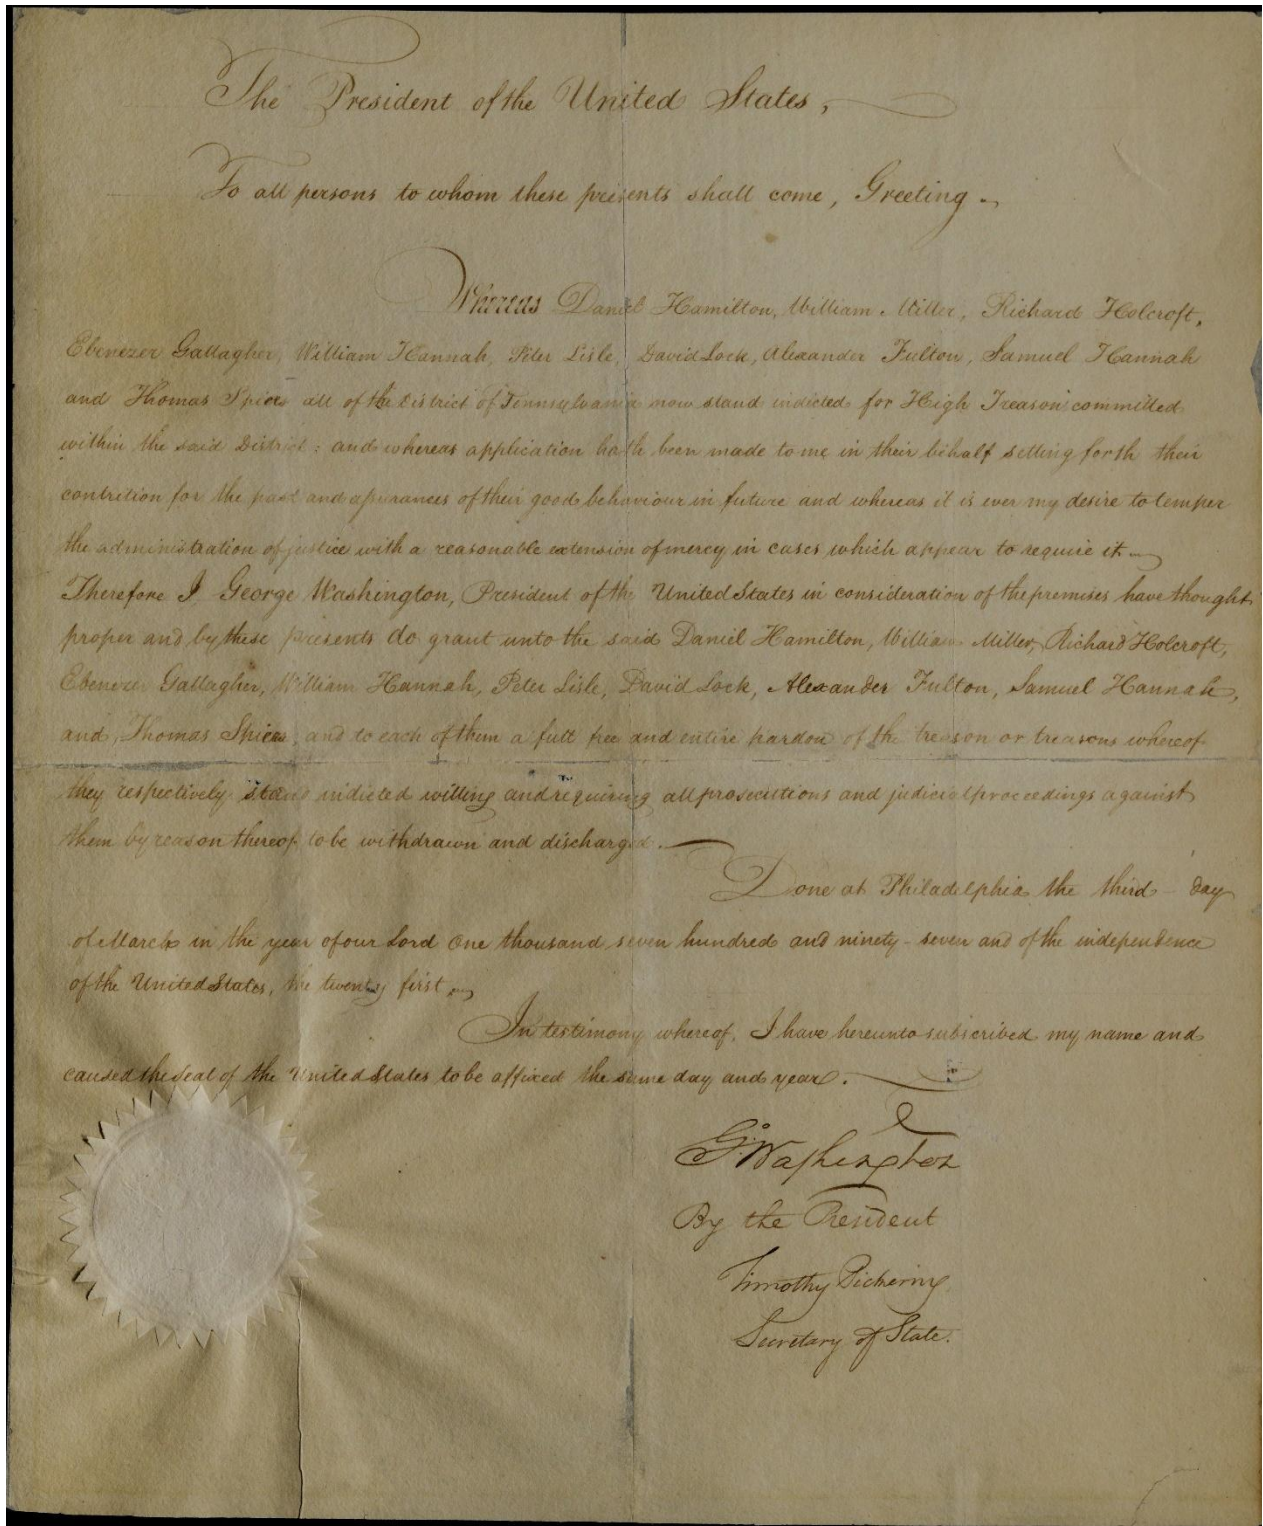 The President of the United States,
To all persons to whom these presents shall come, Greeting.
Whereas Daniel Hamilton, William Miller, Richard Holcroft,
Ebenezer Gallagher, William Hannah, Peter Lisle, David Lock, Alexander Fulton, Samuel Hannah
and Thomas Spiers all of the District of Pennsylvania now stand indicted for High Treason committed
within the said District: and whereas application hath been made to me in their behalf setting forth their
contrition for the past and assurances of their good behaviour in future and whereas it is ever my desire to temper
the administration of justice with a reasonable extension of mercy in cases which appear to require it
Therefore I George Washington, President of the United States in consideration of the premises have thought
proper and by these presents do grant unto the said Daniel Hamilton, William Miller, Richard Holcroft,
Ebenezer Gallagher, William Hannah, Peter Lisle, David Lock, Alexander Fulton, Samuel Hannah,
and Thomas Spiers, and to each of them a full free and entire pardon of the treason or treasons whereof
they respectively stand indicted willing and requiring all prosecutions and judicial proceedings against
them by reason thereof to be withdrawn and discharged.
Done at Philadelphia the third day
of March in the year of our Lord One thousand seven hundred and ninety-seven and of the independence
of the United States, the twenty first
In testimony whereof, I have hereunto subscribed my name and
caused the Seal of the United States to be affixed the same day and year.
Go: Washington
By the President
Timothy Pickering
Secretary of State.